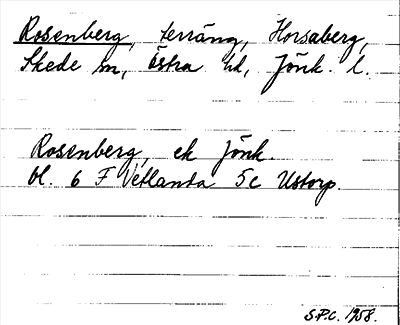 Rosenberg, terräng, Horsaberg,
Skede sn, Östra hd, Jönk. l.
Rosenberg, ek Jönk.
bl. 6 F Vetlanda 5c Ustorp.
S.P.C. 1958.